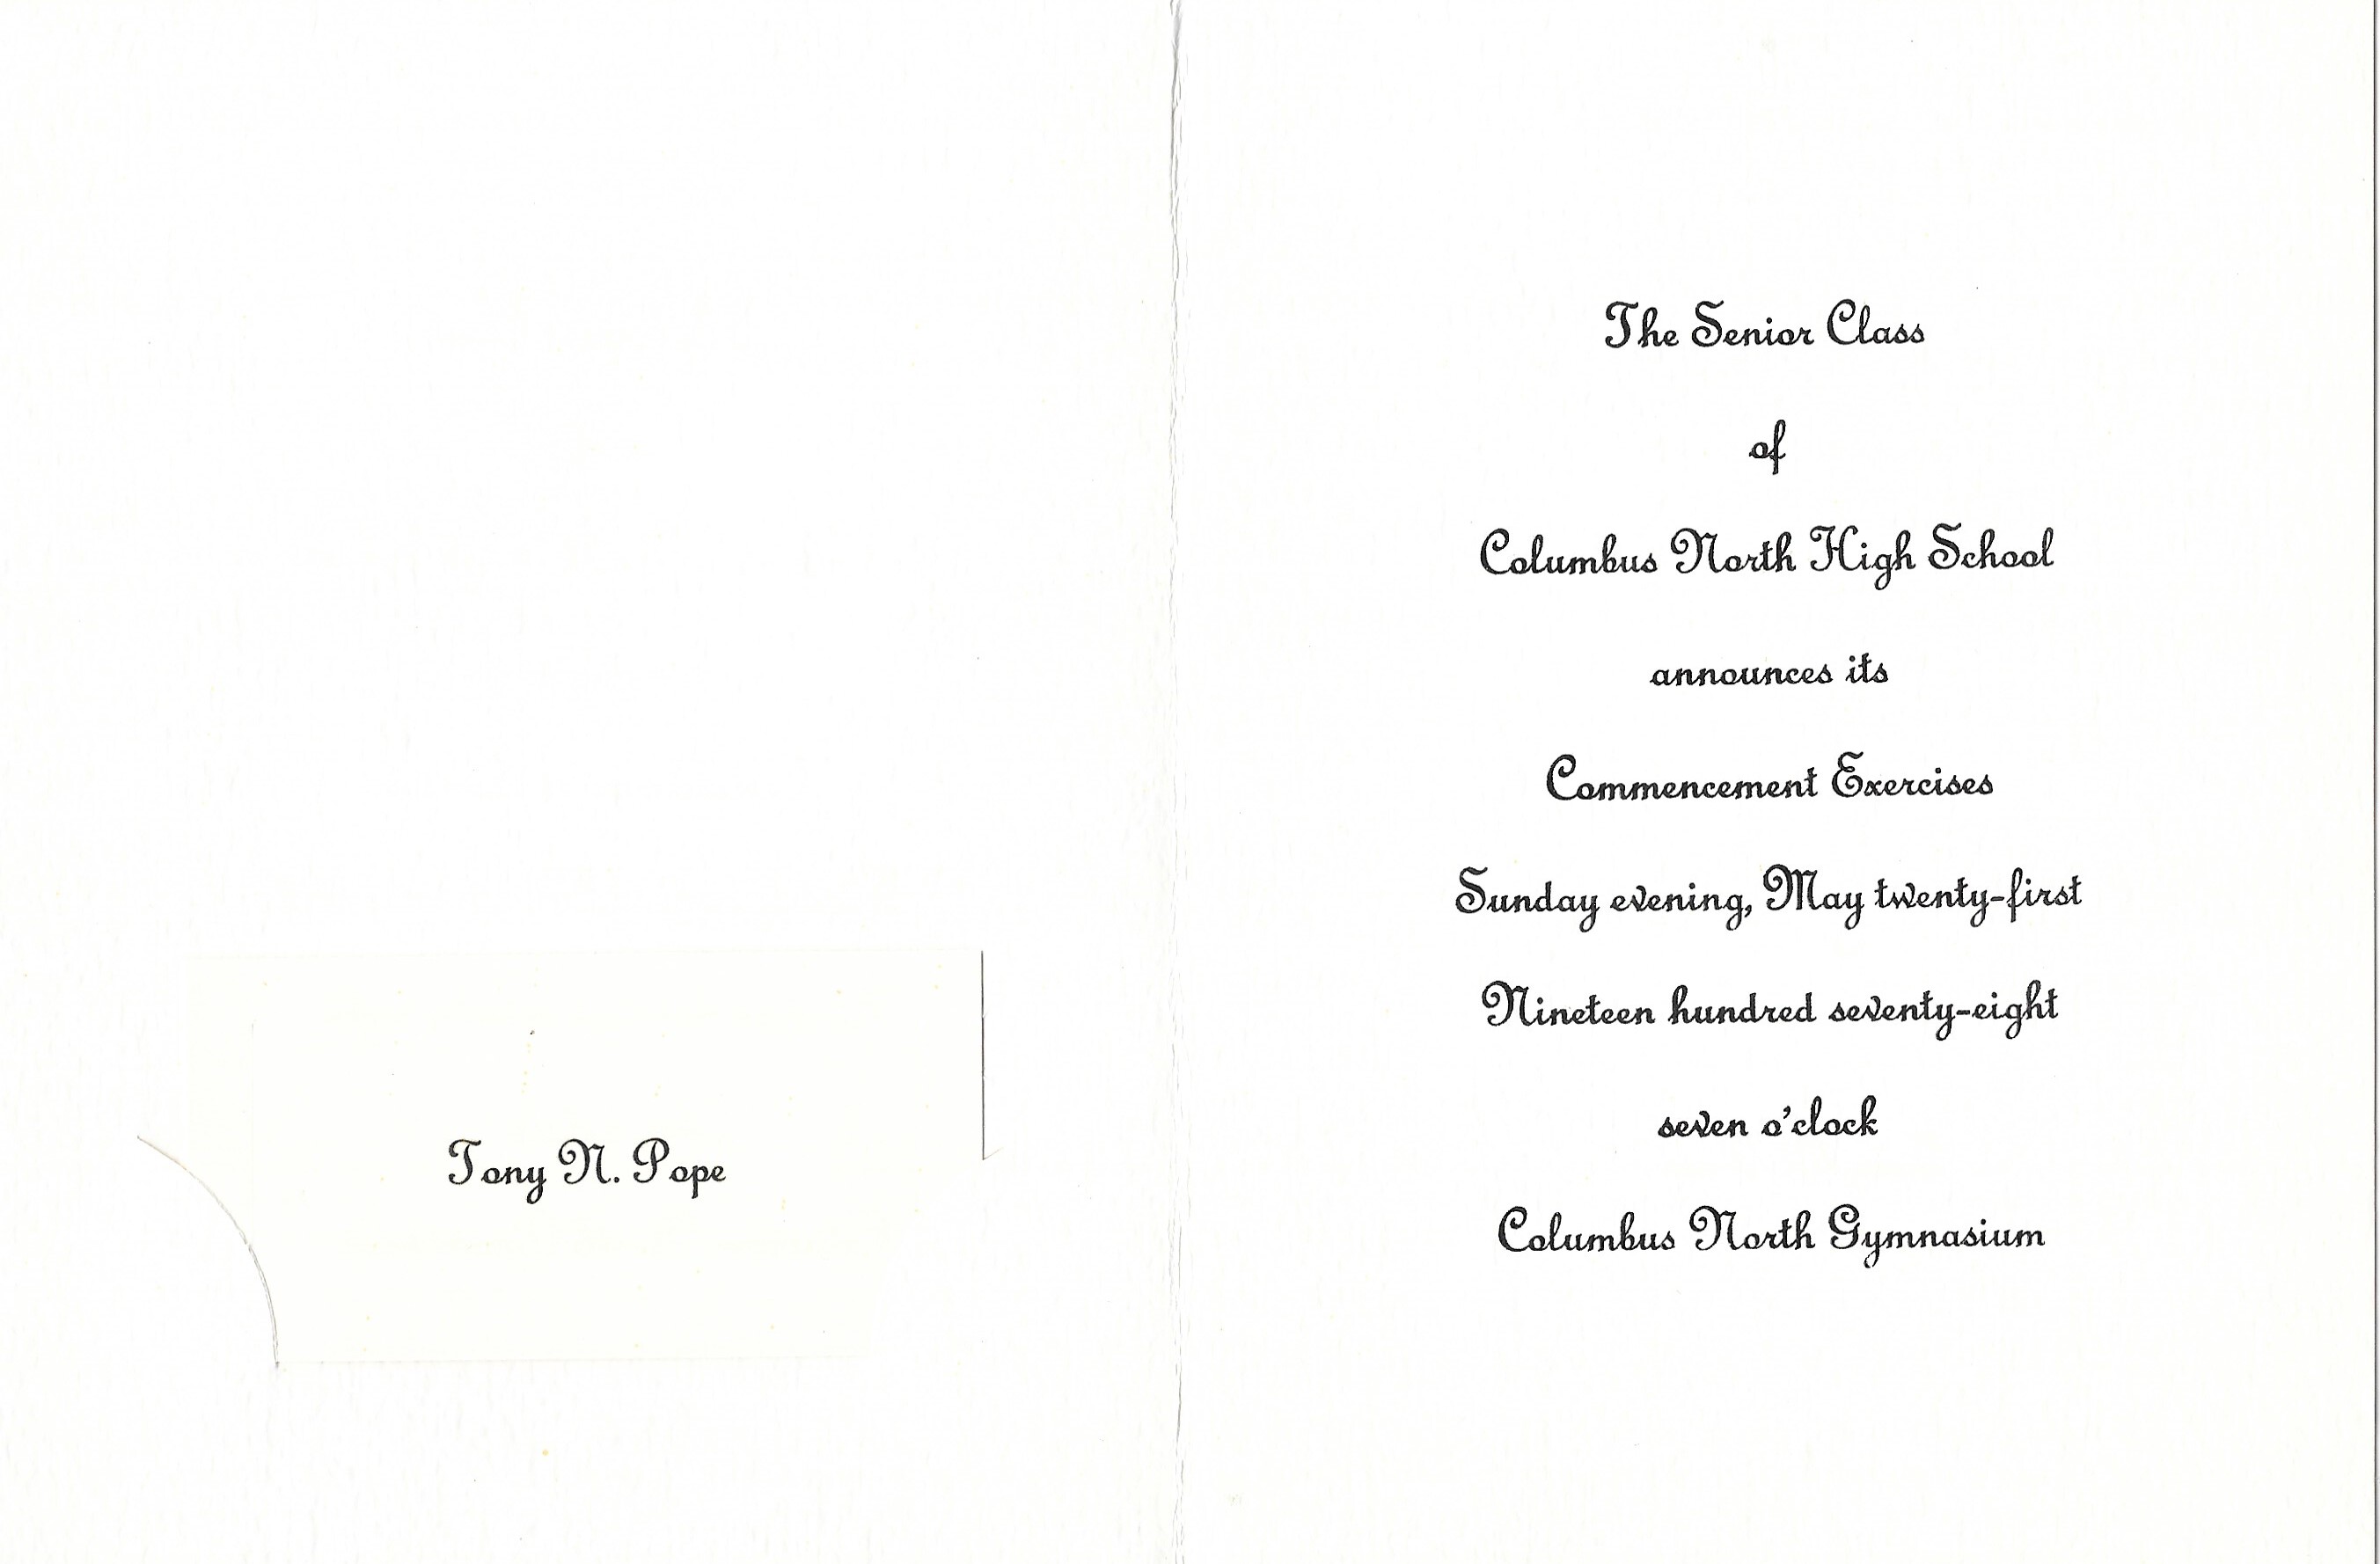 Tony N. Pope
The Senior Class
of
Columbus North High School
announces its
Commencement Exercises
Sunday evening, May twenty-first
Nineteen hundred seventy-eight
seven o'clock
Columbus North Gymnasium